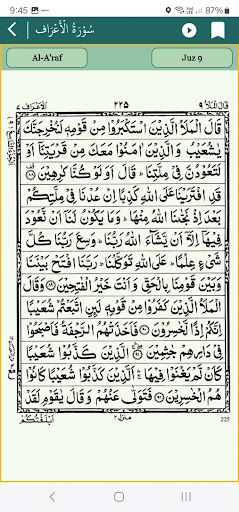 9:45
سُوْرَةُ الْأَعْرَاف
Al-A'raf
Juz 9
اَلْاَعْرَاف ٧
٢٢٥
قَالَ الْمَلَاُ ٩
قَالَ الْمَلَاُ الَّذِيْنَ اسْتَكْبَرُوْا مِنْ قَوْمِهٖ لَنُخْرِجَنَّكَ
يٰشُعَيْبُ وَالَّذِيْنَ اٰمَنُوْا مَعَكَ مِنْ قَرْيَتِنَاۤ اَوْ
لَتَعُوْدُنَّ فِيْ مِلَّتِنَا ؕ قَالَ اَوَلَوْ كُنَّا كٰرِهِيْنَ
قَدِ افْتَرَيْنَا عَلَى اللّٰهِ كَذِبًا اِنْ عُدْنَا فِيْ مِلَّتِكُمْ
بَعْدَ اِذْ نَجّٰىنَا اللّٰهُ مِنْهَا ؕ وَمَا يَكُوْنُ لَنَاۤ اَنْ نَّعُوْدَ
فِيْهَاۤ اِلَّاۤ اَنْ يَّشَآءَ اللّٰهُ رَبُّنَا ؕ وَسِعَ رَبُّنَا كُلَّ
شَيْءٍ عِلْمًا ؕ عَلَى اللّٰهِ تَوَكَّلْنَا ؕ رَبَّنَا افْتَحْ بَيْنَنَا
وَبَيْنَ قَوْمِنَا بِالْحَقِّ وَاَنْتَ خَيْرُ الْفٰتِحِيْنَ وَقَالَ
الْمَلَاُ الَّذِيْنَ كَفَرُوْا مِنْ قَوْمِهٖ لَىِٕنِ اتَّبَعْتُمْ شُعَيْبًا
اِنَّكُمْ اِذًا لَّخٰسِرُوْنَ فَاَخَذَتْهُمُ الرَّجْفَةُ فَاَصْبَحُوْا
فِيْ دَارِهِمْ جٰثِمِيْنَ الَّذِيْنَ كَذَّبُوْا شُعَيْبًا
كَاَنْ لَّمْ يَغْنَوْا فِيْهَا ۚ اَلَّذِيْنَ كَذَّبُوْا شُعَيْبًا كَانُوْا
هُمُ الْخٰسِرِيْنَ فَتَوَلّٰى عَنْهُمْ وَقَالَ يٰقَوْمِ لَقَدْ
اَبْلَغْتُكُمْ
منزل ٢
225